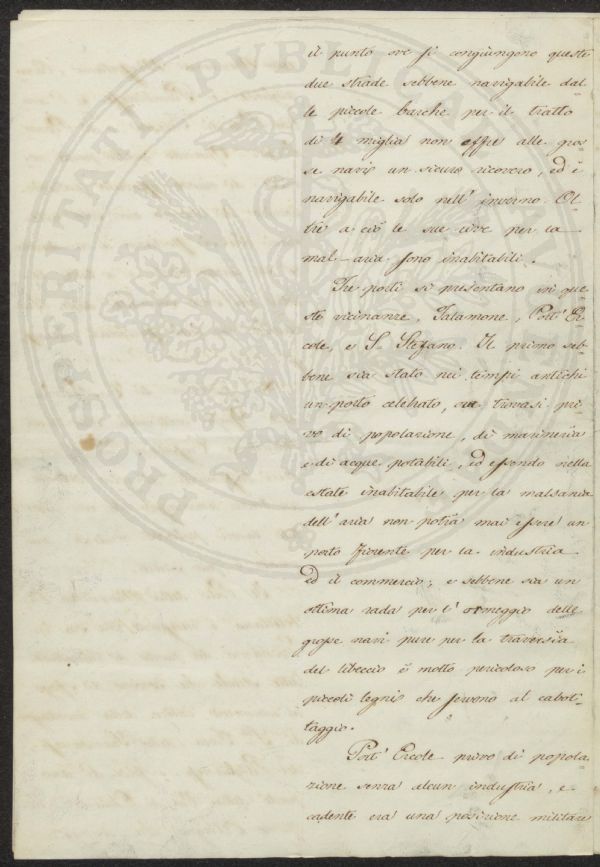 il punto ove si congiungono queste
due strade sebbene navigabile dal
le piccole barche per il tratto
di 4 miglia non offre alle gros
se navi un sicuro ricovero, ed è
navigabile solo nell' inverno. Ol
tre a ciò le sue rive per la
mal-aria sono inabitabili.
Tre porti si presentano in que
ste vicinanze, Talamone, Port' Er
cole, e S. Stefano. Il primo seb-
bene sia stato nei tempi antichi
un porto celebrato, ora trovasi pri
vo di popolazione, di marineria
e di acque potabili, ed essendo nella
estate inabitabile per la malsania
dell' aria non potrà mai essere un
porto fiorente per la industria
ed il commercio; e sebbene sia un
ottima rada per l' ormeggio delle
grosse navi pure per la traversia
del libeccio è molto pericoloso per i
piccoli legni che servono al cabot-
taggio.
Port' Ercole privo di popola
zione senza alcun industria, e
cadente era una posizione militare
PROSPERITATI PVBLICAE